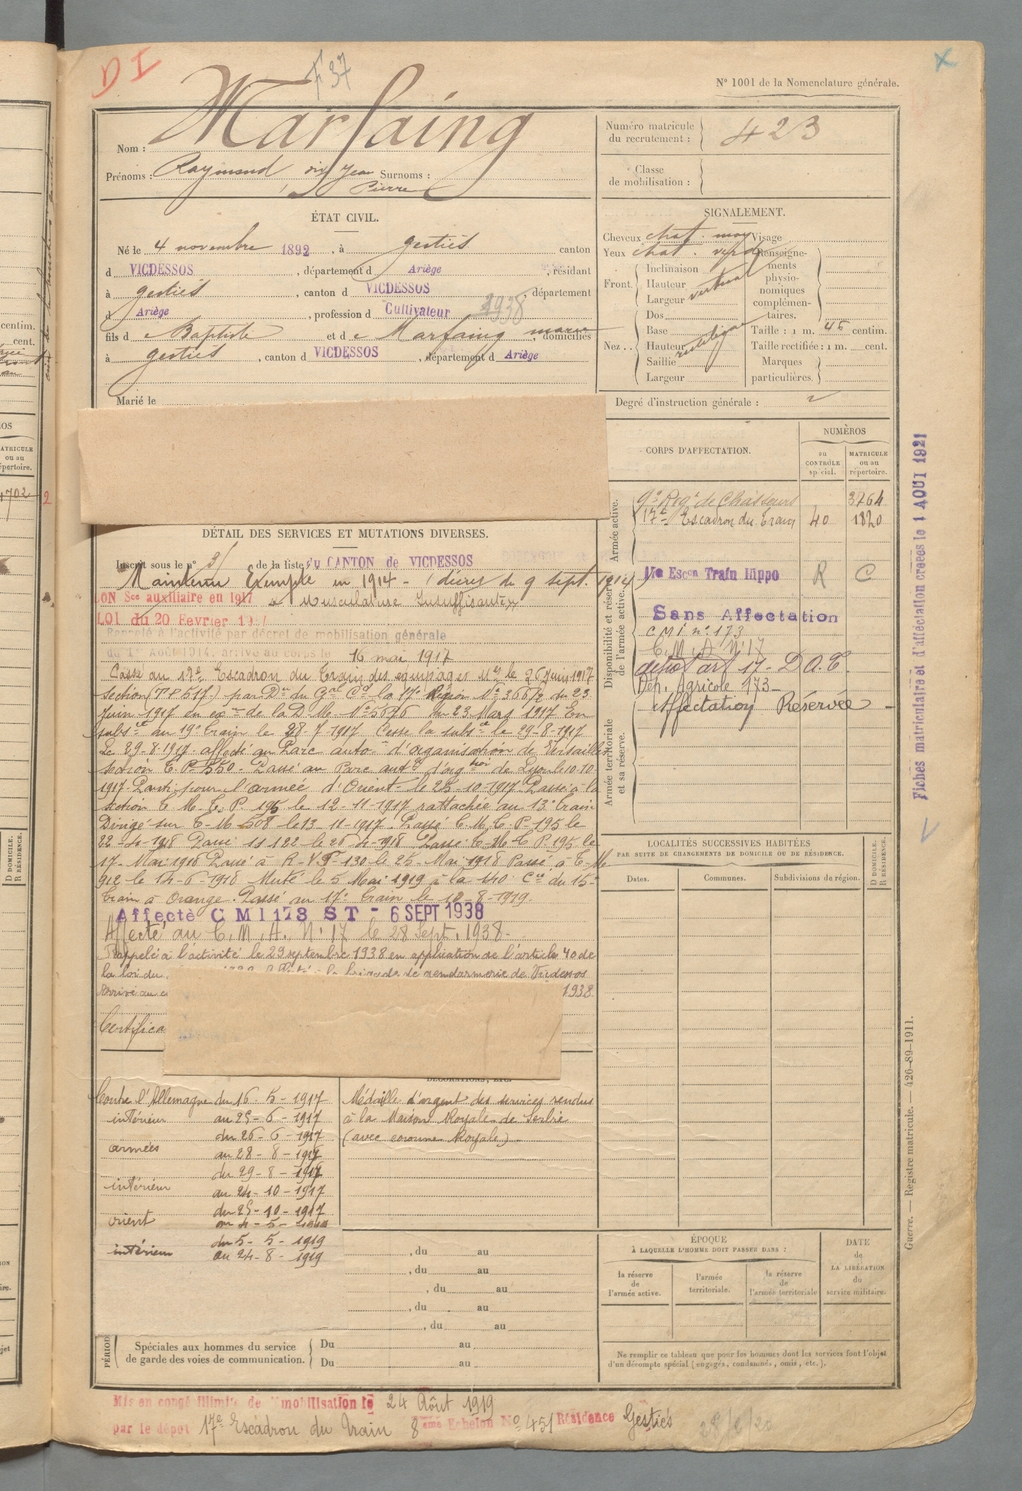 D I
F 37
N° 1001 de la Nomenclature générale.
Nom : Marfaing
Prénoms : Raymond dit Jean Pierre Surnoms :
Numéro matricule du recrutement : 423
Classe de mobilisation :
ÉTAT CIVIL.
Né le 4 novembre 1892, à Gestiès canton
d VICDESSOS, département d Ariège, résidant
à Gestiès, canton d VICDESSOS, département
d Ariège, profession d Cultivateur 1938
fils de Baptiste et de Marfaing Marie, domiciliés
à Gestiès, canton d VICDESSOS, département d Ariège
Marié le
SIGNALEMENT.
Cheveux chat. moy Visage
Yeux chat. verd Renseignements physionomiques complémentaires.
Front. Inclinaison
Hauteur vertical
Largeur
Nez.. Dos
Base
Hauteur rectiligne
Saillie
Largeur
Taille : 1 m. 45 centim.
Taille rectifiée : 1 m. cent.
Marques particulières.
Degré d'instruction générale : 2
CORPS D'AFFECTATION.
NUMÉROS
AU CONTRÔLE spécial.
MATRICULE ou au répertoire.
Armée active.
9e Regt de Chasseurs 3764
17e Escadron du Train 40 1820
Disponibilité et réserve de l'armée active.
17e Escon Train Hippo R C
Sans Affectation
C M I n° 173
C. M. A N° 17
dépôt art 17 - D.A.T.
Dép. Agricole 173
Affectation Réservée
Armée territoriale et sa réserve.
DÉTAIL DES SERVICES ET MUTATIONS DIVERSES.
Inscrit sous le n° 31 de la liste du CANTON de VICDESSOS
Maintenu Exempté en 1914 - (décret du 9 sept. 1914)
BON Sce auxiliaire en 1917 Musculature Insuffisante
LOI du 20 Février 1917
Rappelé à l'activité par décret de mobilisation générale
du 1er Août 1914, arrivé au corps le 16 mai 1917
Passé au 19e Escadron du Train des équipages mres le 26 Juin 1917
section (T.P. 517) par Don du Gal Ct la 17e Région N° 366/2 du 23
Juin 1917 en exon de la D. M. N° 5576 du 23 Mars 1917 En
subsce au 19e Train le 28-7-1917 Cesse la subsce le 29-8-1917
Le 29-8-1917 affecté au Parc auto d'organisation de Versailles
section T.P. 550 - Passé au Parc auto d'orgtion de Lyon le 10-10-
1917 Parti pour l'armée d'Orient le 25-10-1917 Passé à la
section T. M. C. P. 195 le 12-11-1917 rattachée au 13e Train
Dirigé sur T-M 508 le 13-11-1917. Passé T. M. C. P. 195 le
22-4-1918 Passé 11122 le 26-4-1918 Passé T. M. C. P. 195 le
17-Mai 1918 Passé à R.V.F. 130 le 25-Mai 1918 Passé à T-M
912 le 14-6-1918 Muté le 5 Mai 1919 à la 140e Cie du 15e
Train à Orange. Passé au 17e Train le 10-8-1919.
Affecté C M I 173 S T - 6 SEPT 1938
Affecté au C. M. A. N° 17 le 28 Sept. 1938.
Rappelé à l'activité le 29 septembre 1938 en application de l'article 40 de
la loi du brigade de gendarmerie de Vicdessos
Arrivé au c 1938
Certifica
Contre l'Allemagne du 16-5-1917
intérieur au 25-6-1917
du 26-6-1917
armées au 28-8-1917
du 29-8-1917
intérieur au 24-10-1917
du 25-10-1917
orient au 4-5-1919
du 5-5-1919
intérieur au 24-8-1919
DÉCORATIONS, ETC.
Médaille d'argent des services rendus
à la Maison Royale de Serbie
(avec couronne Royale)
, du au
, du au
, du au
, du au
, du au
PÉRIOD
Spéciales aux hommes du service de garde des voies de communication.
Du au
Du au
LOCALITÉS SUCCESSIVES HABITÉES
PAR SUITE DE CHANGEMENTS DE DOMICILE OU DE RÉSIDENCE.
Dates. Communes. Subdivisions de région. D DOMICILE. R RÉSIDENCE.
ÉPOQUE
À LAQUELLE L'HOMME DOIT PASSER DANS :
la réserve de l'armée active.
l'armée territoriale.
la réserve de l'armée territoriale
DATE de LA LIBÉRATION du service militaire.
Ne remplir ce tableau que pour les hommes dont les services font l'objet
d'un décompte spécial (engagés, condamnés, omis, etc.).
Mis en congé illimité de démobilisation le 24 Août 1919
par le dépôt 17e Escadron du Train 8ème Echelon N° 451 Résidence Gestiès 28/2/20
Fiches matriculaire et d'affectation créées le 1 AOUT 1921
Guerre. — Registre matricule. — 426-89-1911.